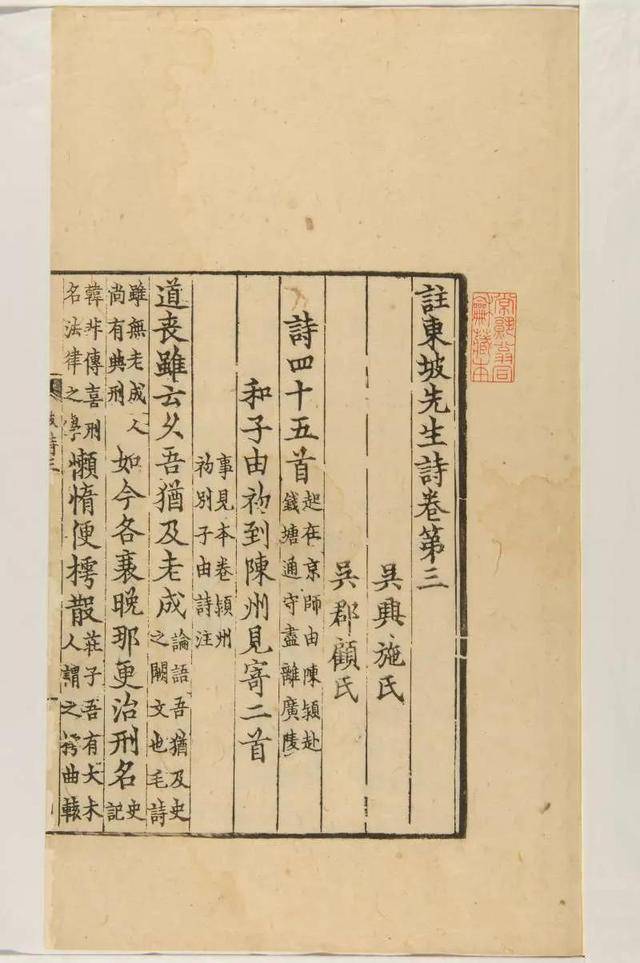 常熟翁同
龢藏本
註東坡先生詩卷第三
吳興施氏
吳郡顧氏
詩四十五首
起在京師由陳潁赴
錢塘通守盡離廣陵
和子由初到陳州見寄二首
事見本卷潁州
初別子由詩注
道喪雖云乆吾猶及老成
論語吾猶及史
之闕文也毛詩
雖無老成人
尚有典刑
如今各衰晚那更治刑名
史
記
韓非傳喜刑
名法律之學
懶惰便樗散
莊子吾有大木
人謂之樗曲轅